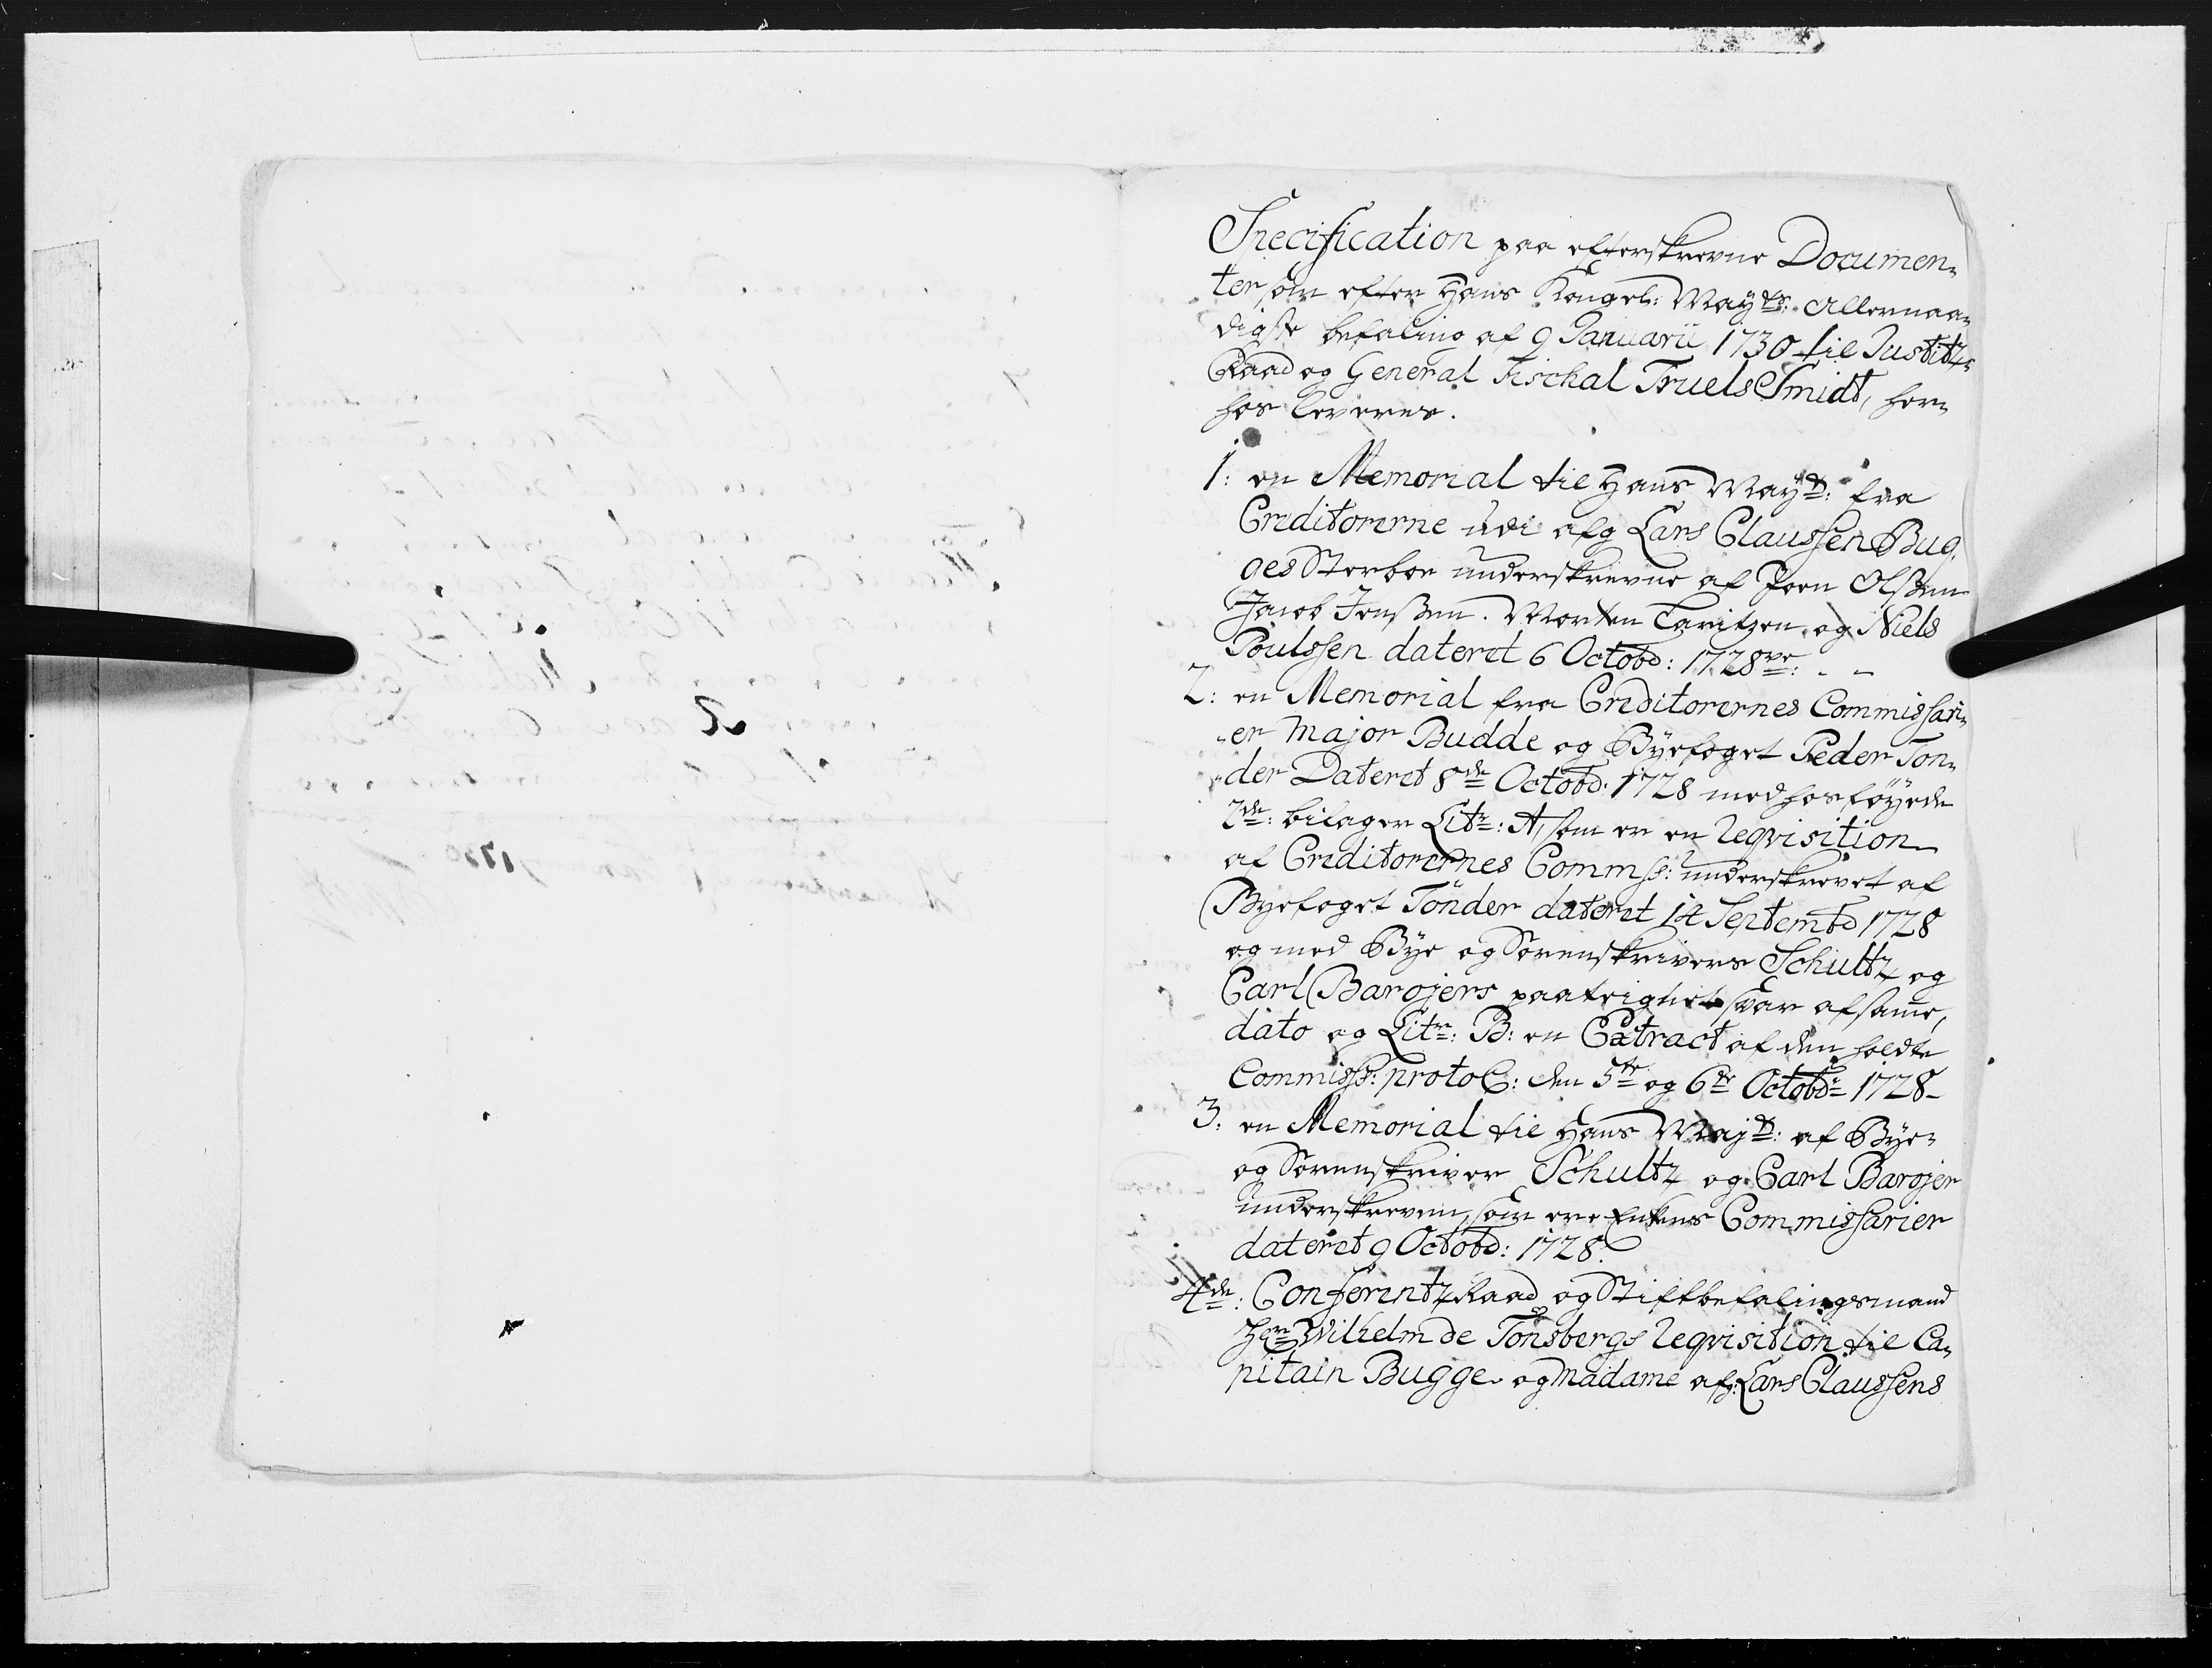 Specification paa efterskrevne Documen-
ter som efter Hans Kongel: Mayts: Allernaa-
digste befaling af 9 Januarii 1730 til Justitz-
Raad og General Fischal Truels Smidt, her-
hos leveres.
1: en Memorial til Hans Mayts: fra
Creditorerne udi afg Lars Claussen Bug-
ges Sterboe underskrevne af Joen Olssen
Jacob Jenssen. Morten Laritzen og Niels
Poulssen dateret 6 Octobr: 1728
2: en Memorial fra Creditorernes Commissari-
er Major Budde og Byefoget Peder Ton-
der Dateret 8de Octobr: 1728 med hosføyede
2de: bilager Litr: A, som er en reqvisition
af Creditorernes Commss: underskrevet af
Byefoget Tönder dateret 14 Septembr 1728
og med Bye og Sorenskrivers Schultz og
Carl Barojers paateignet svar af samme,
dato og Litr: B: en Extract af den holdte
Commiss: protoc: den 5te og 6te Octobr: 1728
3: en Memorial til Hans Mayts: af Bye-
og Sorenskriver Schultz og Carl Barojer
underskreven, som ere Enkens Commissarier
dateret 9 Octobr: 1728.
4de: Conferentz Raad og Stiftbefalingsmand
Hr: Wilhelm de Tonsbergs reqvisition til Ca-
pitain Bugge og Madame afg: Lars Claussens